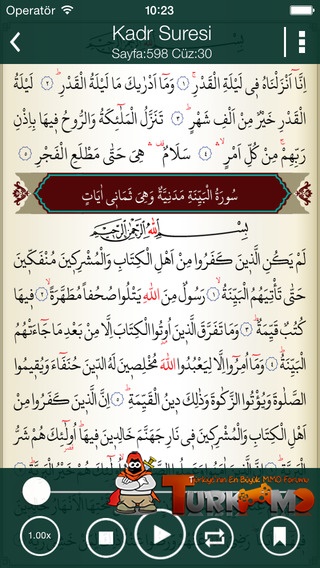 Operatör 10:23
Kadr Suresi
Sayfa:598 Cüz:30
اِنَّٓا اَنْزَلْنَاهُ ف۪ي لَيْلَةِ الْقَدْرِ ﴿١﴾ وَمَٓا اَدْرٰيكَ مَا لَيْلَةُ الْقَدْرِ ﴿٢﴾ لَيْلَةُ
الْقَدْرِ خَيْرٌ مِنْ اَلْفِ شَهْرٍ ﴿٣﴾ تَنَزَّلُ الْمَلٰٓئِكَةُ وَالرُّوحُ ف۪يهَا بِاِذْنِ
رَبِّهِمْ مِنْ كُلِّ اَمْرٍ ﴿٤﴾ سَلَامٌ هِيَ حَتّٰى مَطْلَعِ الْفَجْرِ ﴿٥﴾
سُورَةُ الْبَيِّنَةِ مَدَنِيَّةٌ وَهِيَ ثَمَانِي اٰيَاتٍ
بِسْمِ اللّٰهِ الرَّحْمٰنِ الرَّح۪يمِ
لَمْ يَكُنِ الَّذ۪ينَ كَفَرُوا مِنْ اَهْلِ الْكِتَابِ وَالْمُشْرِك۪ينَ مُنْفَكّ۪ينَ
حَتّٰى تَأْتِيَهُمُ الْبَيِّنَةُ ﴿١﴾ رَسُولٌ مِنَ اللّٰهِ يَتْلُوا صُحُفاً مُطَهَّرَةً ﴿٢﴾ ف۪يهَا
كُتُبٌ قَيِّمَةٌ ﴿٣﴾ وَمَا تَفَرَّقَ الَّذ۪ينَ اُو۫تُوا الْكِتَابَ اِلَّا مِنْ بَعْدِ مَا جَٓاءَتْهُمُ
الْبَيِّنَةُ ﴿٤﴾ وَمَٓا اُمِرُٓوا اِلَّا لِيَعْبُدُوا اللّٰهَ مُخْلِص۪ينَ لَهُ الدّ۪ينَ حُنَفَٓاءَ وَيُق۪يمُوا
الصَّلٰوةَ وَيُؤْتُوا الزَّكٰوةَ وَذٰلِكَ د۪ينُ الْقَيِّمَةِ ﴿٥﴾ اِنَّ الَّذ۪ينَ كَفَرُوا مِنْ
اَهْلِ الْكِتَابِ وَالْمُشْرِك۪ينَ ف۪ي نَارِ جَهَنَّمَ خَالِد۪ينَ ف۪يهَا اُو۬لٰٓئِكَ هُمْ شَرُّ
Türkiye'nin En Büyük MMO Forumu
TURKMMO
1.00x